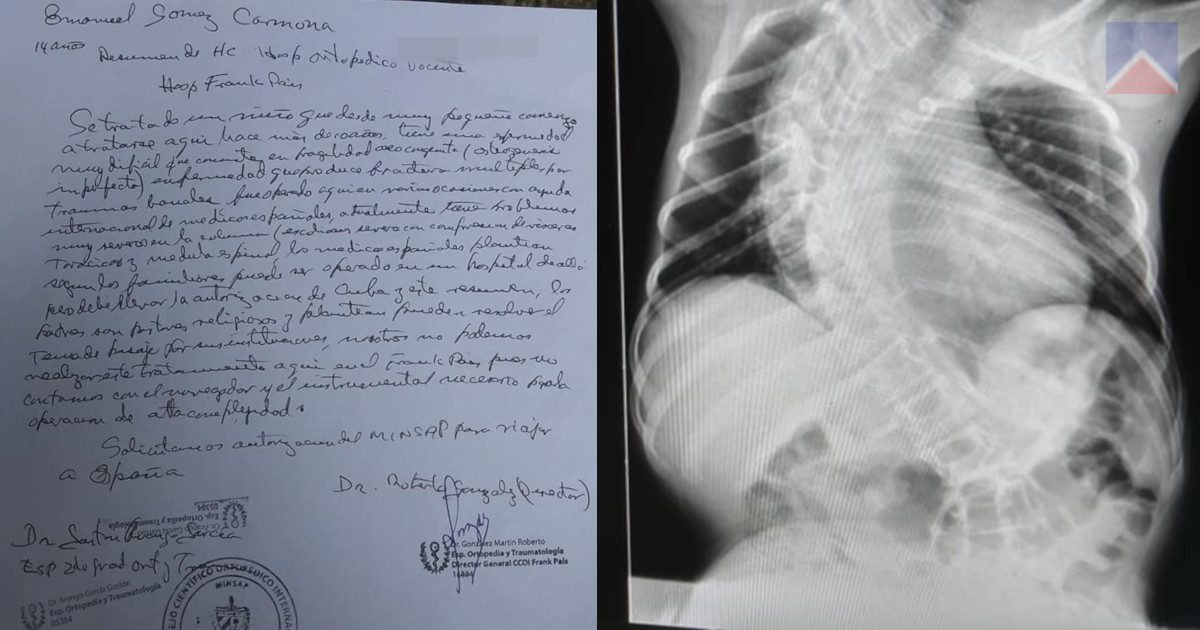 Emanuel Gomez Carmona
14 años
Resumen de HC Hosp Ortopedico Docente
Hosp Frank Pais
Se trata de un niño que desde muy pequeño comenzo
a tratarse aqui, hace mas de años, tiene una enfermedad
muy dificil que consiste en fragilidad osea congenita (osteogenesis
imperfecta) enfermedad que produce fracturas multiples por
traumas banales fue operado aqui en varias ocasiones con ayuda
internacional de medicos españoles, actualmente tiene problemas
muy severos en la columna (escoliosis severa con compresion de visceras
toracicas y medula espinal, los medicos españoles plantean
segun los familiares puede ser operado en un hospital de alla
pero debe llevar la autorizacion de Cuba y este resumen, los
padres son pastores religiosos y plantean pueden resolver el
tema de pasaje por sus instituciones, nosotros no podemos
realizar este tratamiento aqui en el Frank Pais pues no
contamos con el navegador y el instrumental necesario para la
operacion de alta complejidad.
Solicitamos autorizacion del MINSAP para viajar
a España
Dr. Roberto Gonzalez (Director)
Dr. Gonzalez Martin Roberto
Esp. Ortopedia y Traumatología
Director General CCOI Frank País
Esp. Ortopedia y Traumatología
05384
Dr. García
Esp 2do grad Ort y
Esp. Ortopedia y Traumatología
05384
CIENTÍFICO ORTOPÉDICO INTERNA
MINSAP